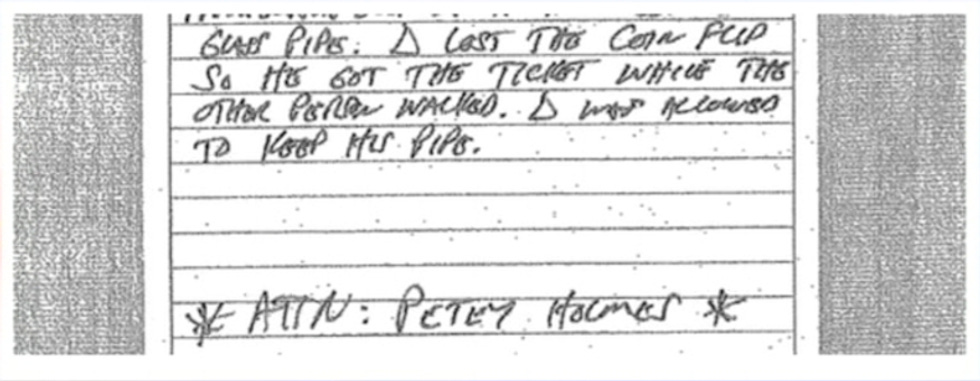 GLASS PIPE. Δ LOST THE COIN FLIP
SO HE GOT THE TICKET WHILE THE
OTHER PERSON WALKED. Δ WAS ALLOWED
TO KEEP HIS PIPE.
* ATTN: PETEY HOLMES *